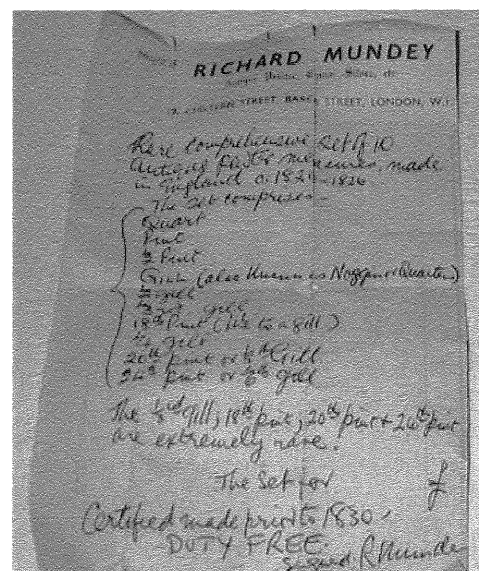 RICHARD MUNDEY
STREET, BAKER STREET, LONDON, W.1
Rare comprehensive Set of 10
Antique Pewter measures, made
in England c. 1824-1826
The Set comprises -
Quart
Pint
½ Pint
Gill (also known as Noggin or Quartern)
½ gill
gill
18th Pint (4½ to a gill)
¼ gill
20th pint or 1/5th Gill
24th pint or 1/6th gill
The 1/3rd gill, 18th pint, 20th pint + 24th pint
are extremely rare.
The Set for £
Certified made prior to 1830
DUTY FREE
Signed R Munde